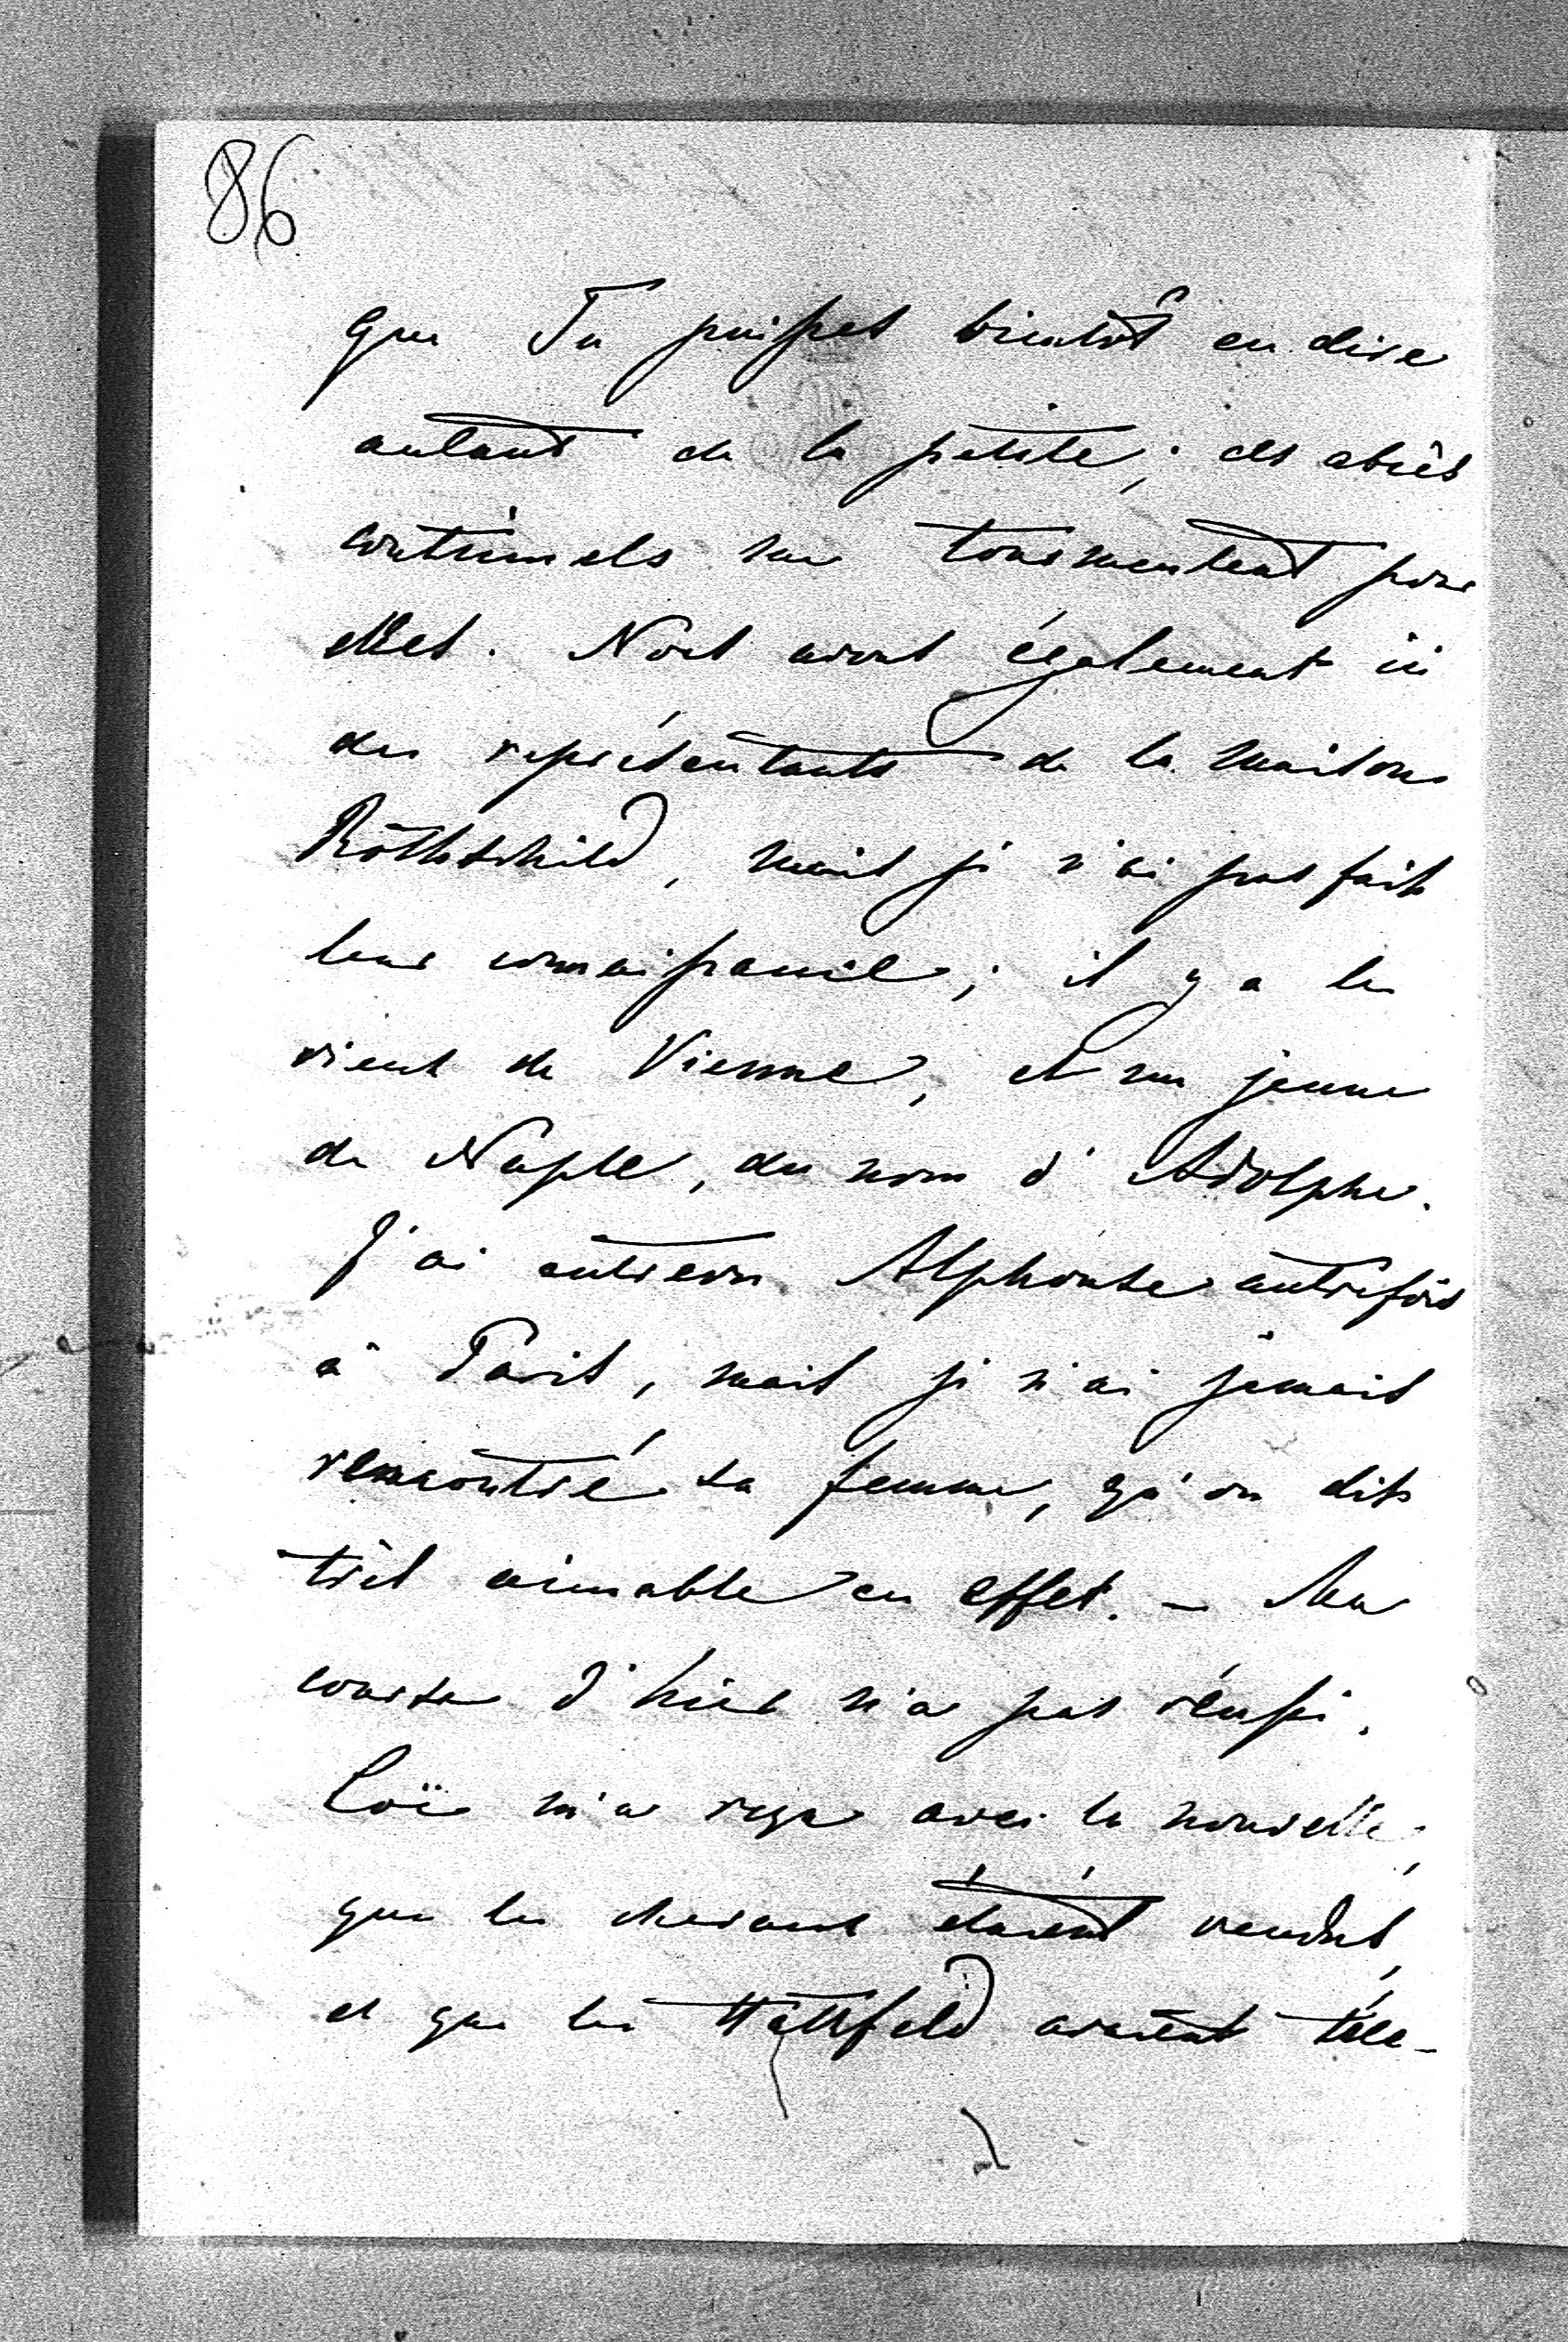 86
que Tu puisses bientôt en dire
autant de la petite; ces abcès
continuels me tourmentent pour
elles. Nous avons également ici
des représentants de la maison
Rothschild, mais je n'ai pas fait
leur connaissance; il y a le
vieux de Vienne, et un jeune
de Naple, du nom d'Adolphe.
J'ai entrevu Alphonse autrefois
à Paris, mais je n'ai jamais
rencontré sa femme, qu'on dit
très aimable en effet. — Ma
course d'hier n'a pas réussi.
Coë m'a reçu avec la nouvelle,
que les chevaux étaient vendus,
et que les Hatzfeld avaient télé-